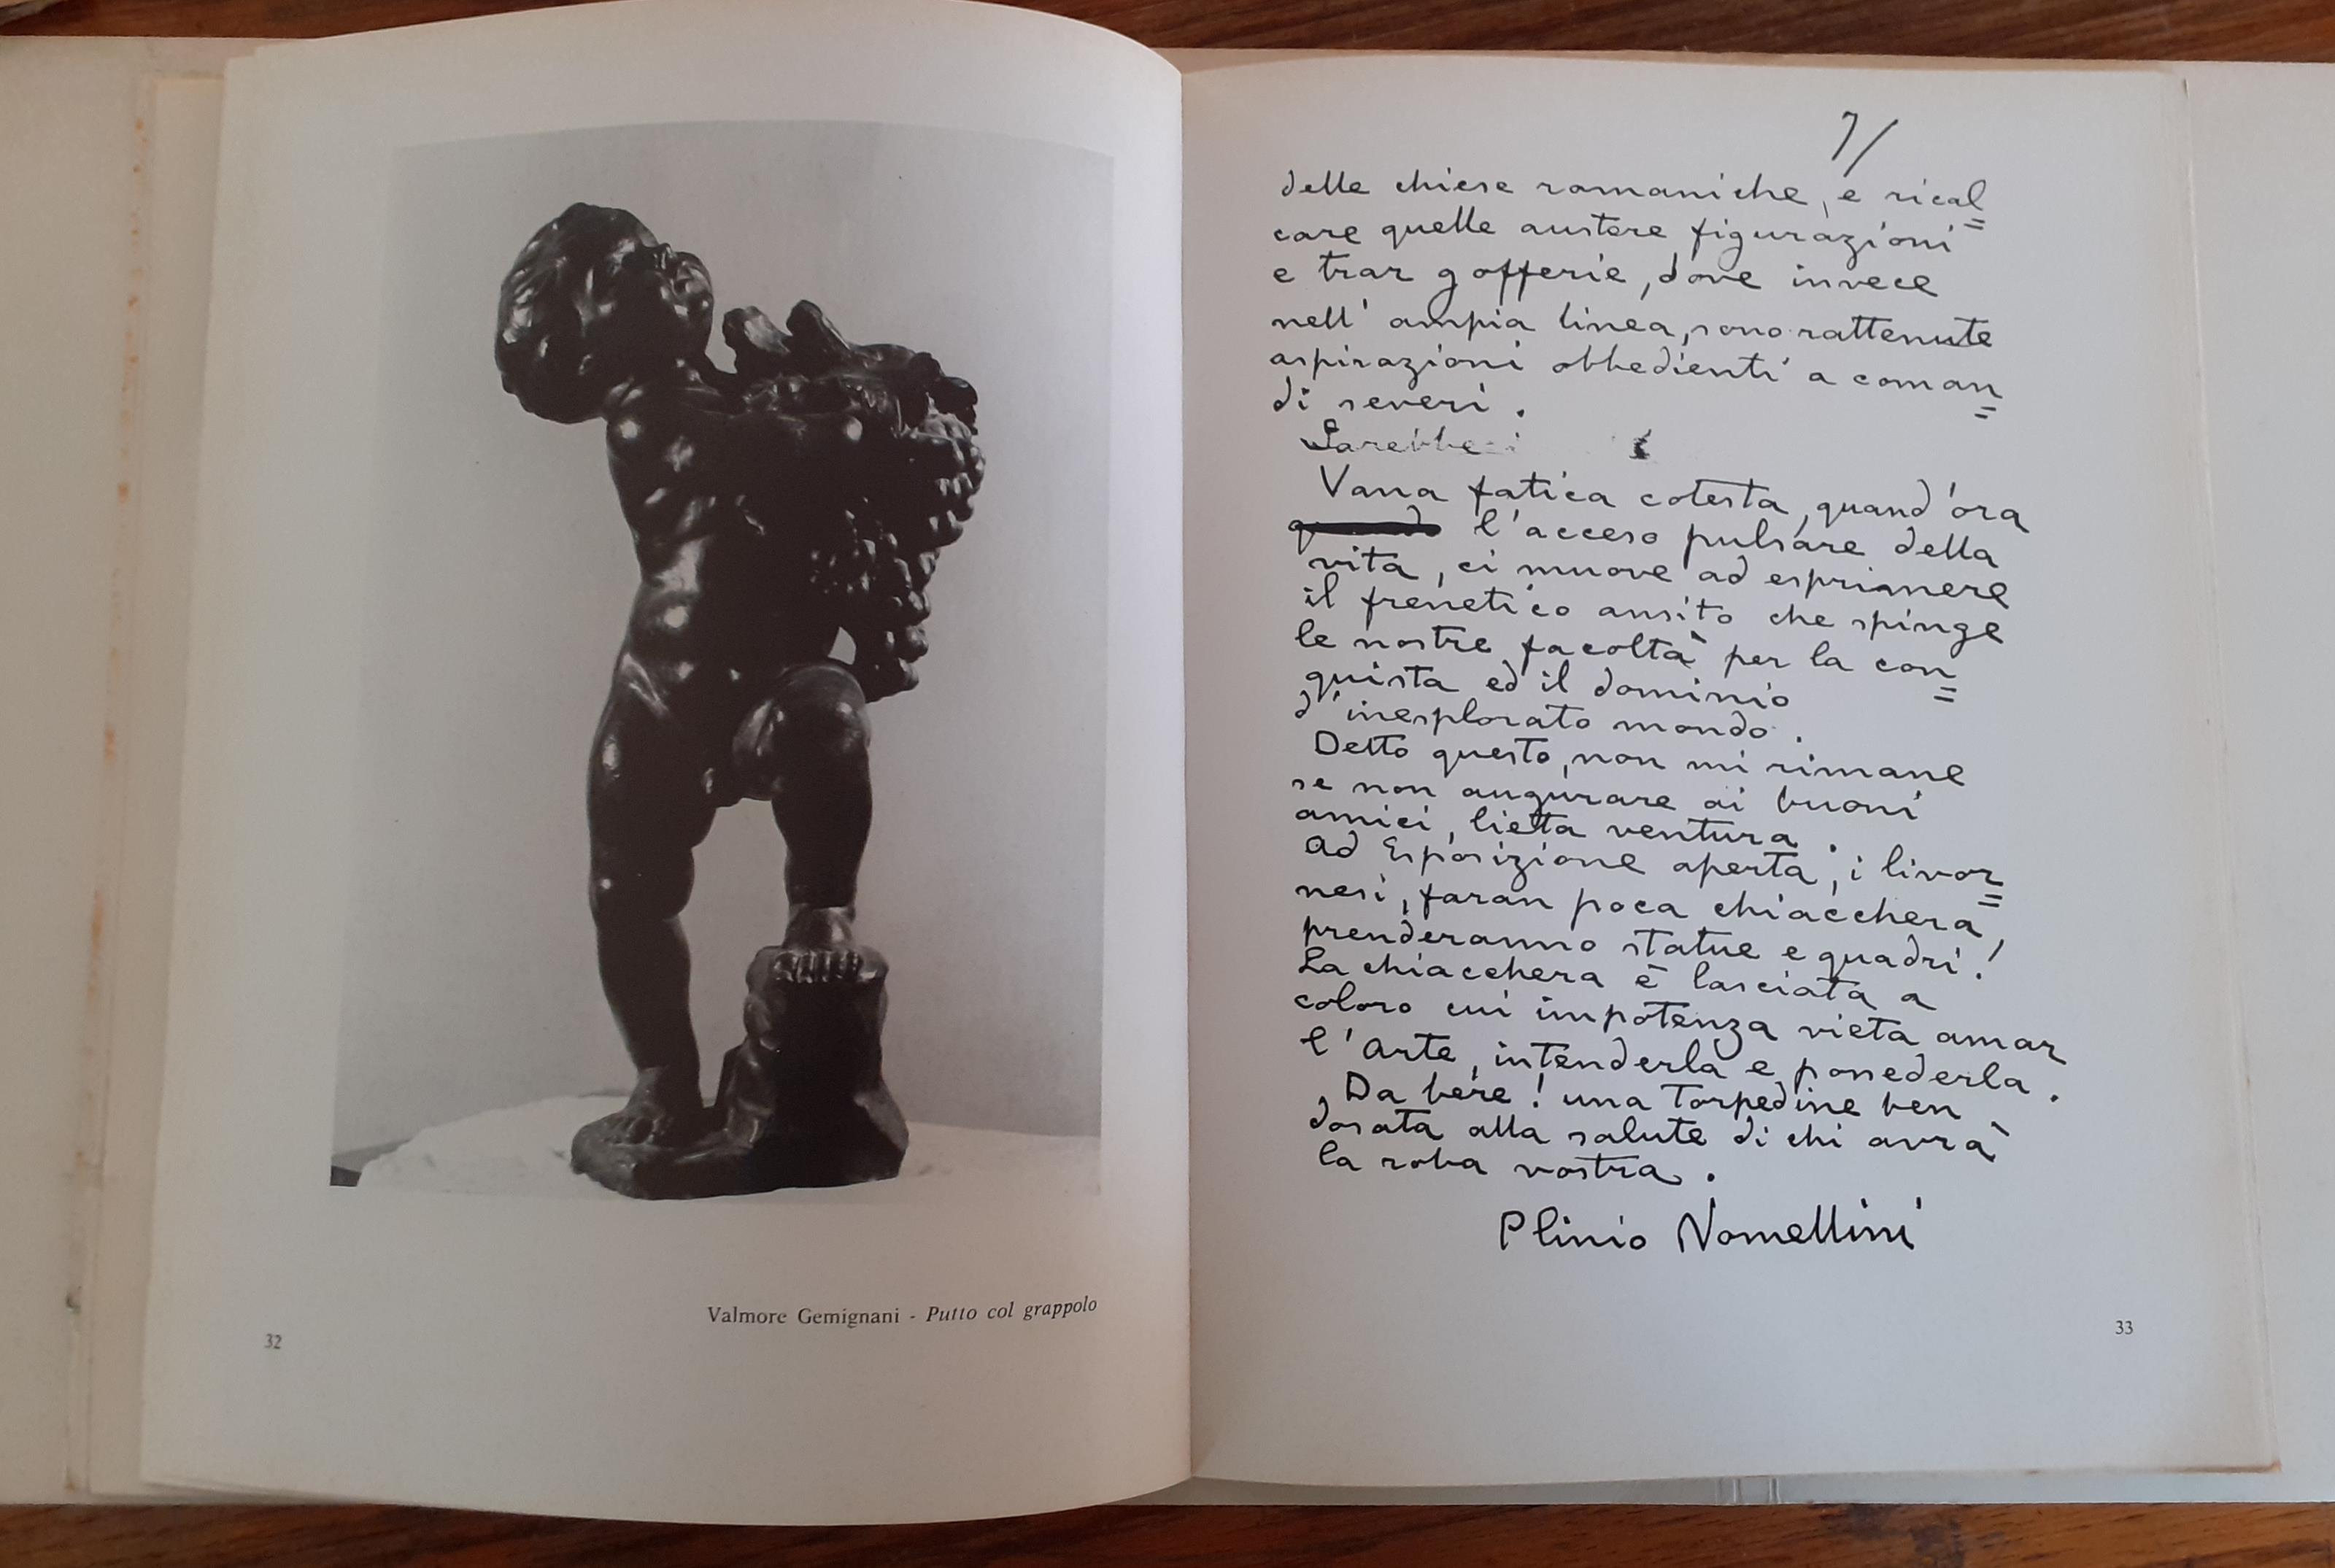 Valmore Gemignani - Putto col grappolo
32
7/
delle chiese romaniche, e rical=
care quelle austere figurazioni
e trar gofferie, dove invece
nell' ampia linea, sono rattenute
aspirazioni obbedienti a coman=
di severi.
Sarebbe
Vana fatica cotesta, quand'ora
l'acceso pulsare della
vita, ci muove ad esprimere
il frenetico ansito che spinge
le nostre facoltà per la con=
quista ed il dominio
d'inesplorato mondo.
Detto questo, non mi rimane
se non augurare ai buoni
amici, lieta ventura.
Ad Esposizione aperta, i livor=
nesi, faran poca chiacchera,
prenderanno statue e quadri!
La chiacchera è lasciata a
coloro cui impotenza vieta amar
l'Arte, intenderla e possederla.
Da bere! una torpedine ben
dosata alla salute di chi avrà
la roba vostra.
Plinio Nomellini
33